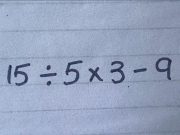 15 ÷ 5 × 3 − 9